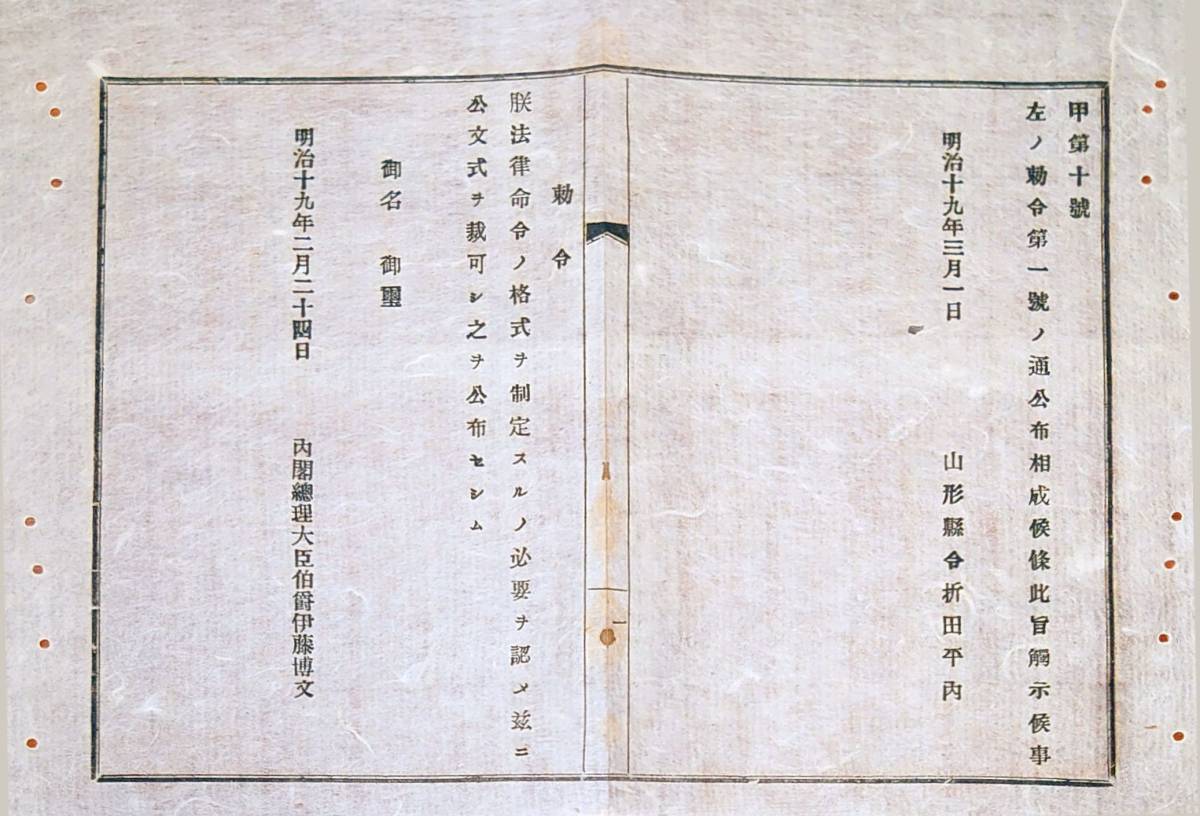 甲第十號
左ノ勅令第一號ノ通公布相成候條此旨觸示候事
明治十九年三月一日
山形縣令折田平內
勅令
朕法律命令ノ格式ヲ制定スルノ必要ヲ認メ玆ニ
公文式ヲ裁可シ之ヲ公布セシム
御名御璽
明治十九年二月二十四日
內閣總理大臣伯爵伊藤博文
一